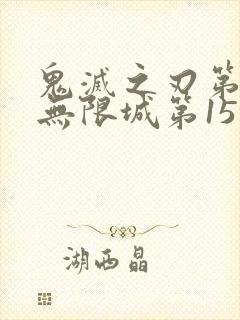 鬼滅之刃第
無限城第15
湖西晶